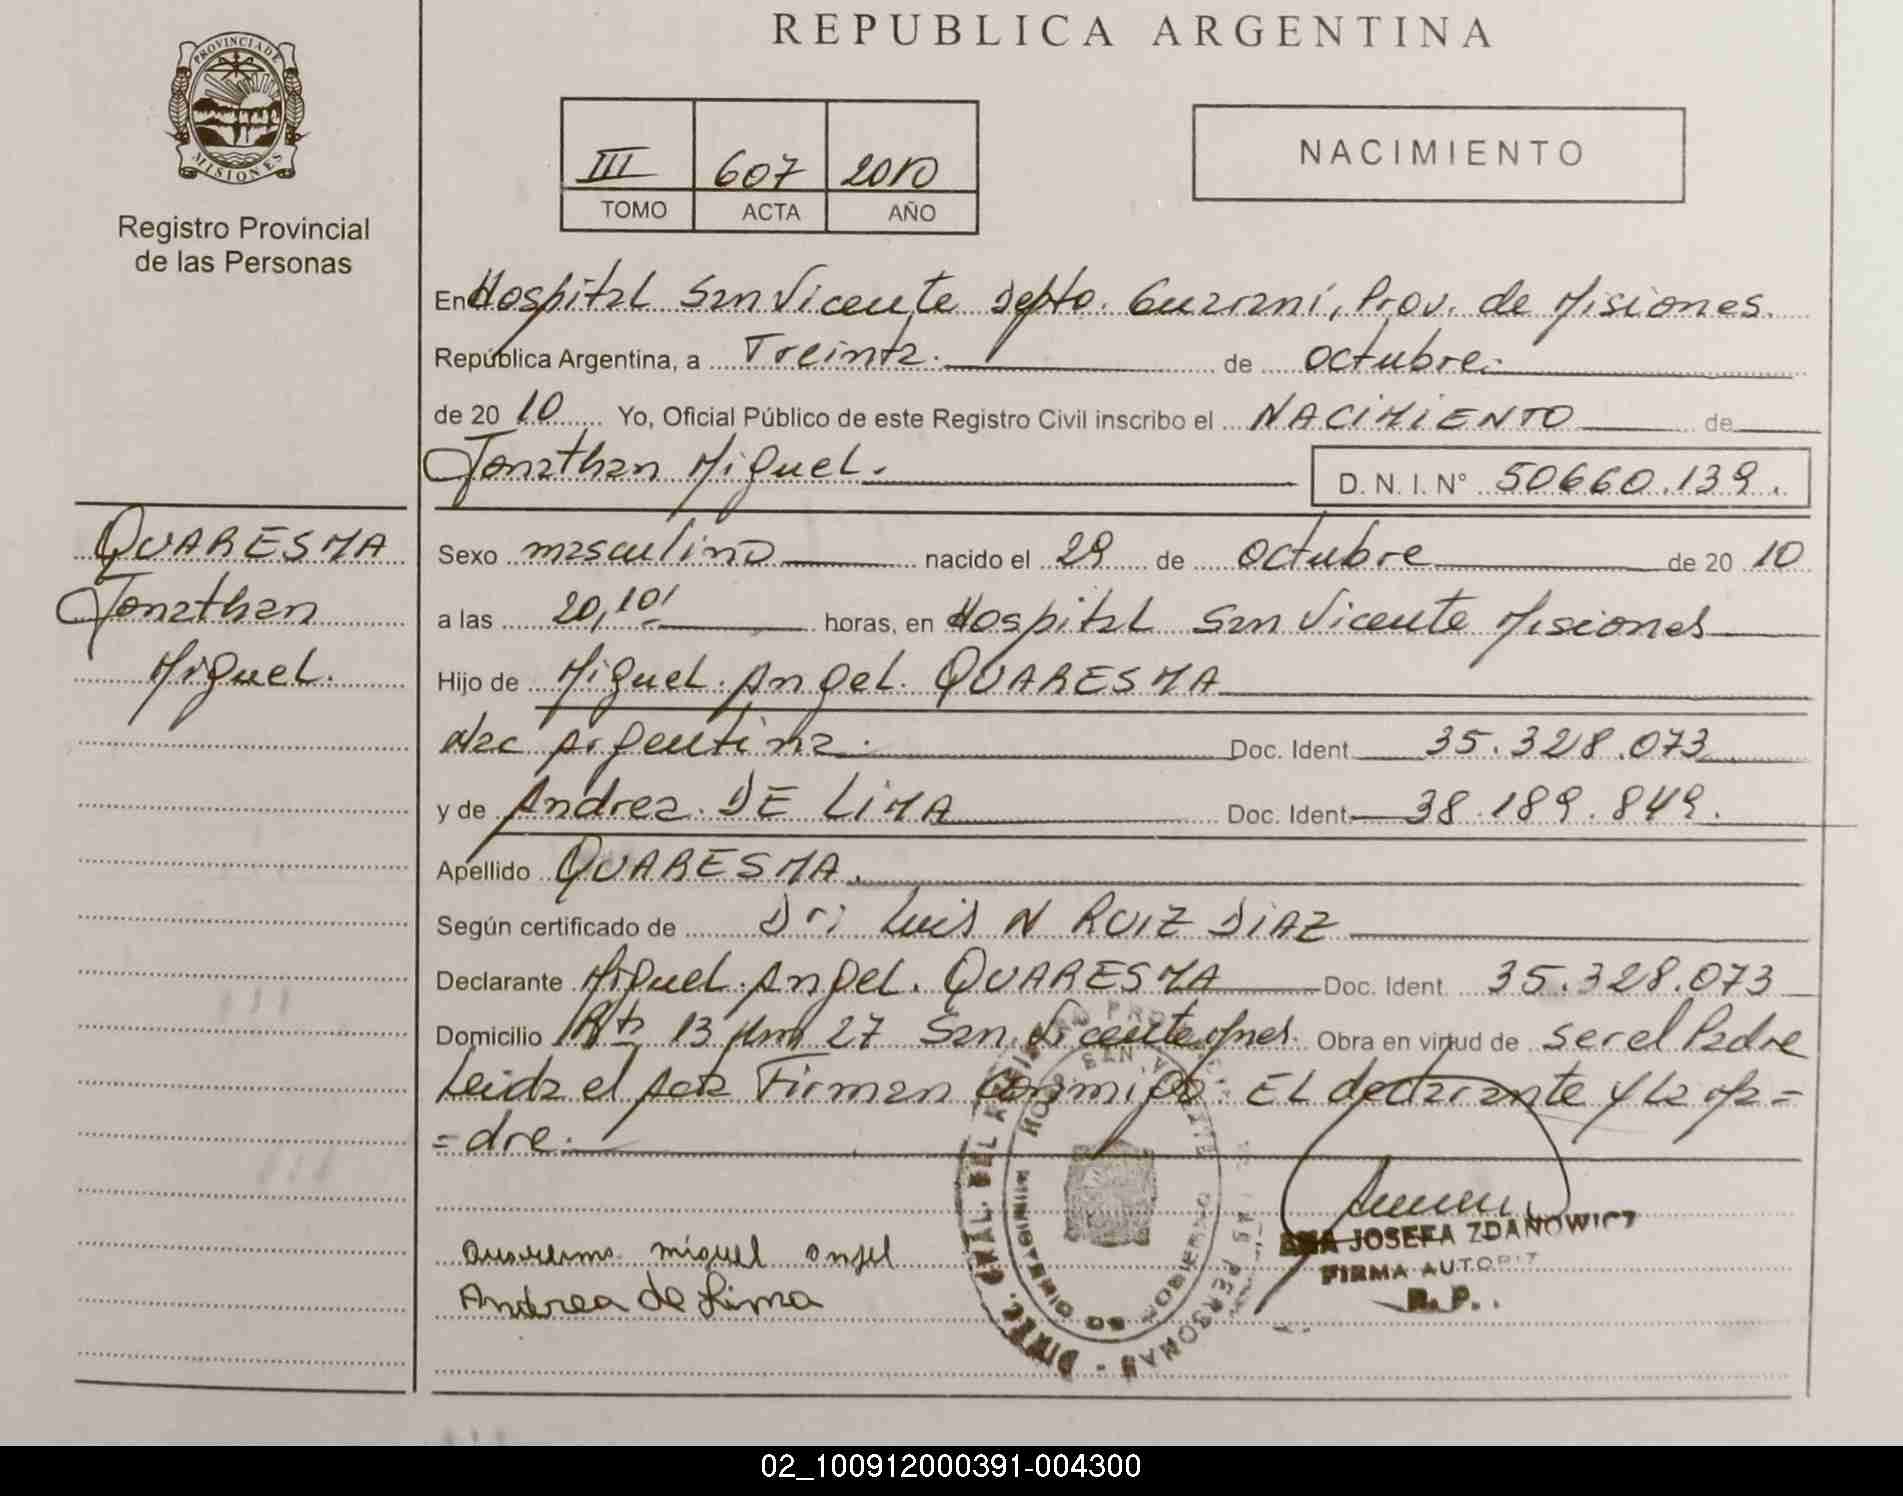 REPUBLICA ARGENTINA
PROVINCIA DE
MISIONES
Registro Provincial
de las Personas
III 607 2010
TOMO ACTA AÑO
NACIMIENTO
En Hospital San Vicente Depto. Guaraní, Prov. de Misiones.
República Argentina, a Treinta. de octubre.
de 20 10 Yo, Oficial Público de este Registro Civil inscribo el NACIMIENTO de
Jonathan Miguel. D. N. I. N° 50660.139.
QUARESMA
Jonathan
Miguel.
Sexo masculino nacido el 29 de octubre de 20 10
a las 20,10' horas, en Hospital San Vicente Misiones
Hijo de Miguel Angel QUARESMA
Nac Argentina. Doc. Ident. 35.328.073
y de Andrea DE LIMA Doc. Ident. 38.189.849.
Apellido QUARESMA.
Según certificado de Dr: Luis N RUIZ DIAZ
Declarante Miguel Angel. QUARESMA Doc. Ident. 35.328.073
Domicilio Rta 13 Km 27 San Vicente Mnes. Obra en virtud de ser el Padre
Leida el Acta Firman Conmigo: EL declarante y la Ma=
=dre.
Quaresma miguel angel
Andrea de Lima
JOSEFA ZDANOWICZ
FIRMA AUTORIZ
R. P.
02_100912000391-004300